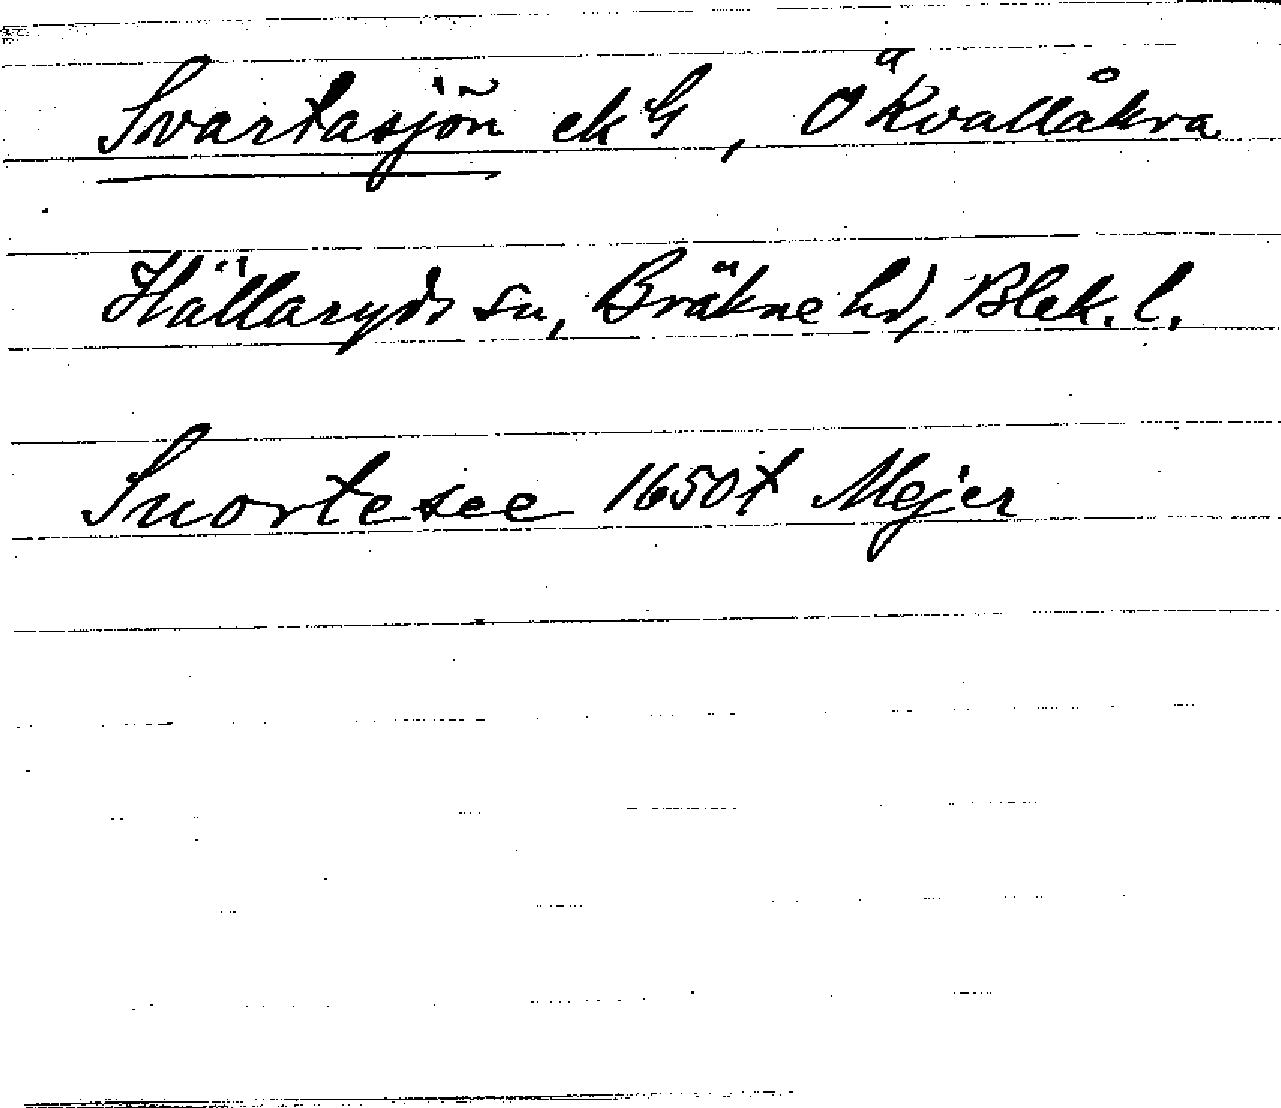 Svartasjön ek G, Ö Kvallåkra
Hällaryds sn, Bräkne hd, Blek. l.
Suortesee 1650t Mejer